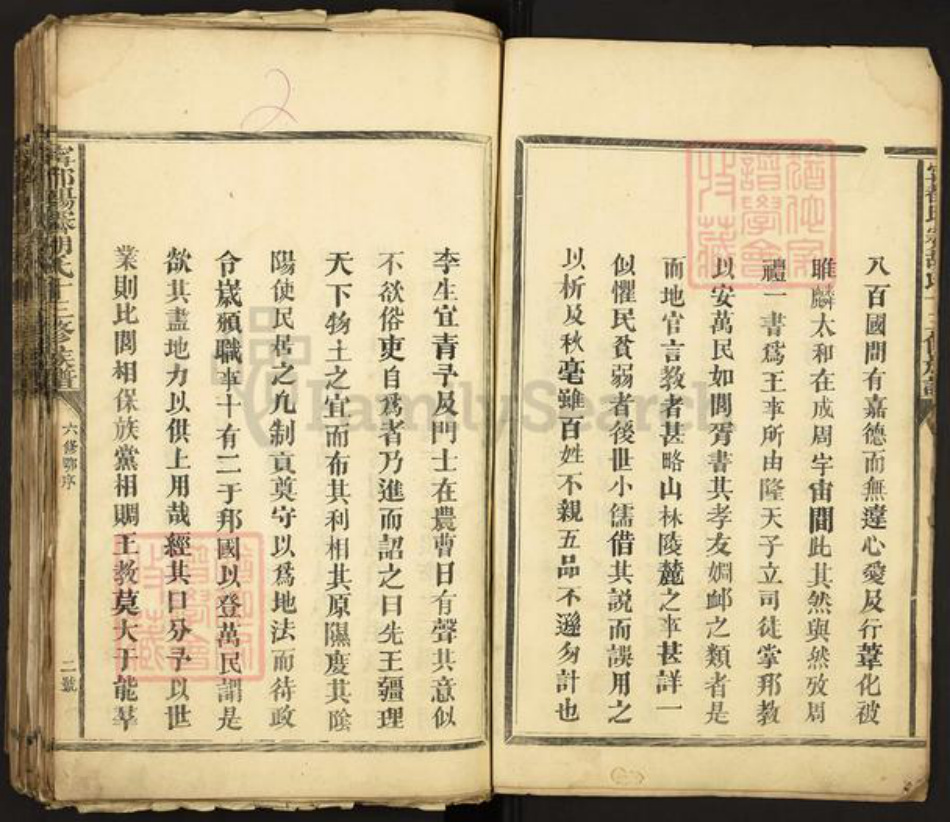 八百國間有嘉德而無違心愛及行葦化被
睢麟太和在成周宇宙間此其然與然攷周
禮一書爲王事所由隆天子立司徒掌邦教
以安萬民如閭胥書其孝友婣䘏之類者是
而地官言教者甚略山林陵麓之事甚詳一
似懼民貧弱者後世小儒借其説而誤用之
以析及秋毫雖百姓不親五品不遜勿計也
氏十三修族譜
六修鄂序
二號
李生宜青予及門士在農曹日有聲其意似
不欲俗吏自爲者乃進而詔之曰先王疆理
天下物土之宜而布其利相其原隰度其陰
陽使民居之九制貢奠守以爲地法而待政
令嵗頒職事十有二于邦國以登萬民謂是
欲其盡地力以供上用哉經其口分予以世
業則比閭相保族黨相賙王教莫大于能羣
2
FamilySearch